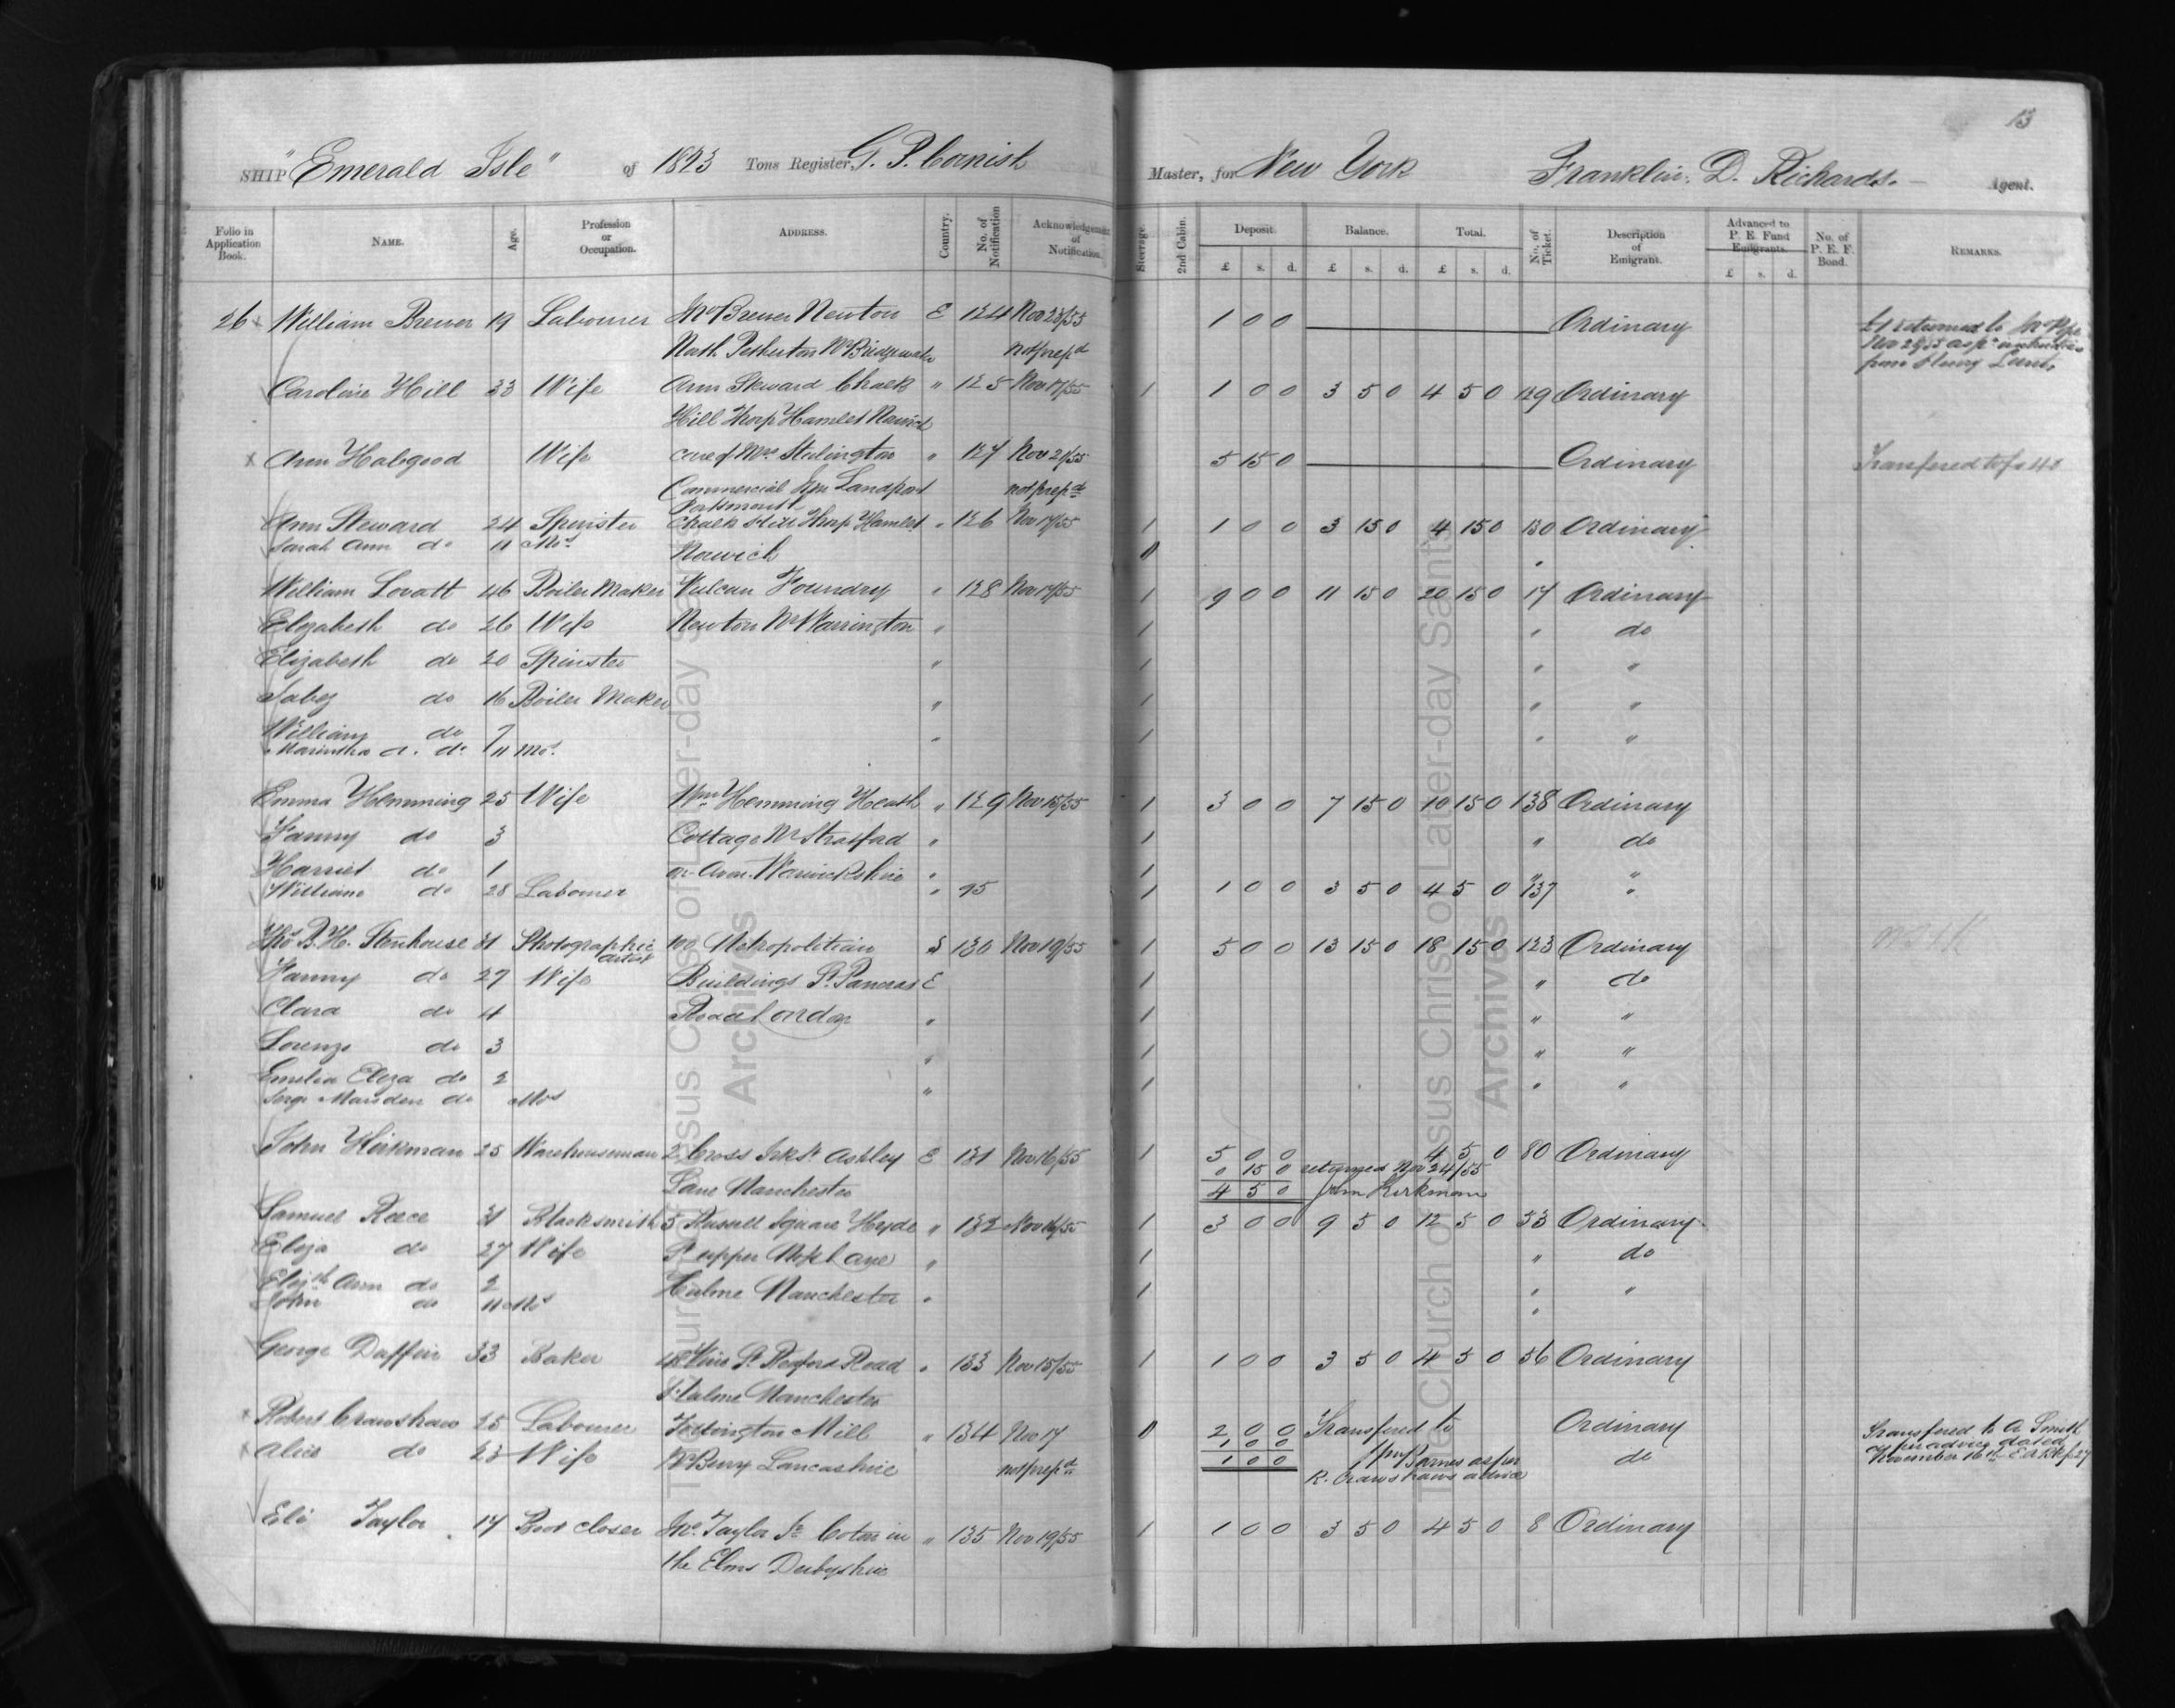 13
SHIP "Emerald Isle" of 1823 Tons Register, G. P. Cornish Master, for New York Franklin. D. Richards. Agent.
Folio in Application Book. NAME. Age. Profession or Occupation. ADDRESS. Country. No. of Notification Acknowledgement of Notification. Steerage. 2nd Cabin. Deposit. Balance. Total. No. of Ticket. Description of Emigrant. Advanced to P. E. Fund Emigrants. No. of P. E. F. Bond. REMARKS.
£ s. d. £ s. d. £ s. d. £ s. d.
26 x William Brewer 19 Labourer Jno Brewer Newton E 124 Nov 23/55 1 0 0 Ordinary £1 returned to Jno
North Petherton Nr Bridgewater not prepd Nov 29/55 as pr instruction
from
Caroline Hill 33 Wife Ann Steward Chalk " 125 Nov 17/55 1 1 0 0 3 5 0 4 5 0 129 Ordinary
Hill Thorp Hamlet Norwich
x Ann Habgood Wife care of Mrs Stebington " 127 Nov 21/55 5 15 0 Ordinary Transfered to fo 40
Commercial Inn Landport not prepd
Portsmouth
Ann Steward 24 Spinster Chalk Hill Thorp Hamlet " 126 Nov 17/55 1 1 0 0 3 15 0 4 15 0 130 Ordinary
Sarah Ann do 11 Mos Norwich
William Lovatt 46 Boiler Maker Vulcan Foundry " 128 Nov 17/55 1 9 0 0 11 15 0 20 15 0 17 Ordinary
Elizabeth do 26 Wife Newton Nr Warrington " 1 " do
Elizabeth do 20 Spinster " 1 " "
Jabez do 16 Boiler Maker " 1 " "
William do 7 " 1 " "
A. do 11 Mos.
Emma Hemming 25 Wife Wm Hemming Heath " 129 Nov 15/55 1 3 0 0 7 15 0 10 15 0 138 Ordinary
Fanny do 3 Cottage Nr Stratford " 1 " do
Harriet do 1 on Avon Warwickshire " 1 " "
William do 28 Labourer " 95 1 1 0 0 3 5 0 4 5 0 137 "
Thos B. H. Stenhouse 31 Photographic Artist 100 Metropolitian S 130 Nov 19/55 1 5 0 0 13 15 0 18 15 0 123 Ordinary
Fanny do 27 Wife Buildings St Pancras E 1 " do
Clara do 4 Road London " 1 " "
Lorenzo do 3 " 1 " "
Emelia Eliza do 2 " 1 " "
Marsden do Mos
John Kirkman 25 Warehouseman 2 Cross St Ashley E 131 Nov 16/55 1 5 0 0 4 5 0 80 Ordinary
0 15 0 returned Nov 24/55
Lane Manchester 4 5 0 John Kirkman
Samuel Reece 31 Blacksmith 5 Russell Square Hyde " 132 Nov 16/55 1 3 0 0 9 5 0 12 5 0 53 Ordinary
Eliza do 27 Wife St upper Moss Lane " 1 " do
Elizth Ann do 2 Hulme Manchester " 1 " "
John do 11 Mos "
George Daffin 33 Baker Vine St Road " 133 Nov 15/55 1 1 0 0 3 5 0 4 5 0 56 Ordinary
Hulme Manchester
x Robert Crawshaw 25 Labourer Tottington Mill " 134 Nov 17 2 0 0 Transfered to Ordinary Transfered to A Smith
1 0 0 as per advice dated
x Alice do 23 Wife Nr Bury Lancashire not prepd 1 0 0 Barnes as per do November 16th
R. Crawshaws advice
Eli Taylor 17 Boot Closer Jno. Taylor Sr Coton in " 135 Nov 19/55 1 1 0 0 3 5 0 4 5 0 8 Ordinary
the Elms Derbyshire
The Church of Jesus Christ of Latter-day Saints
Archives
The Church of Jesus Christ of Later-day Saints
Archives